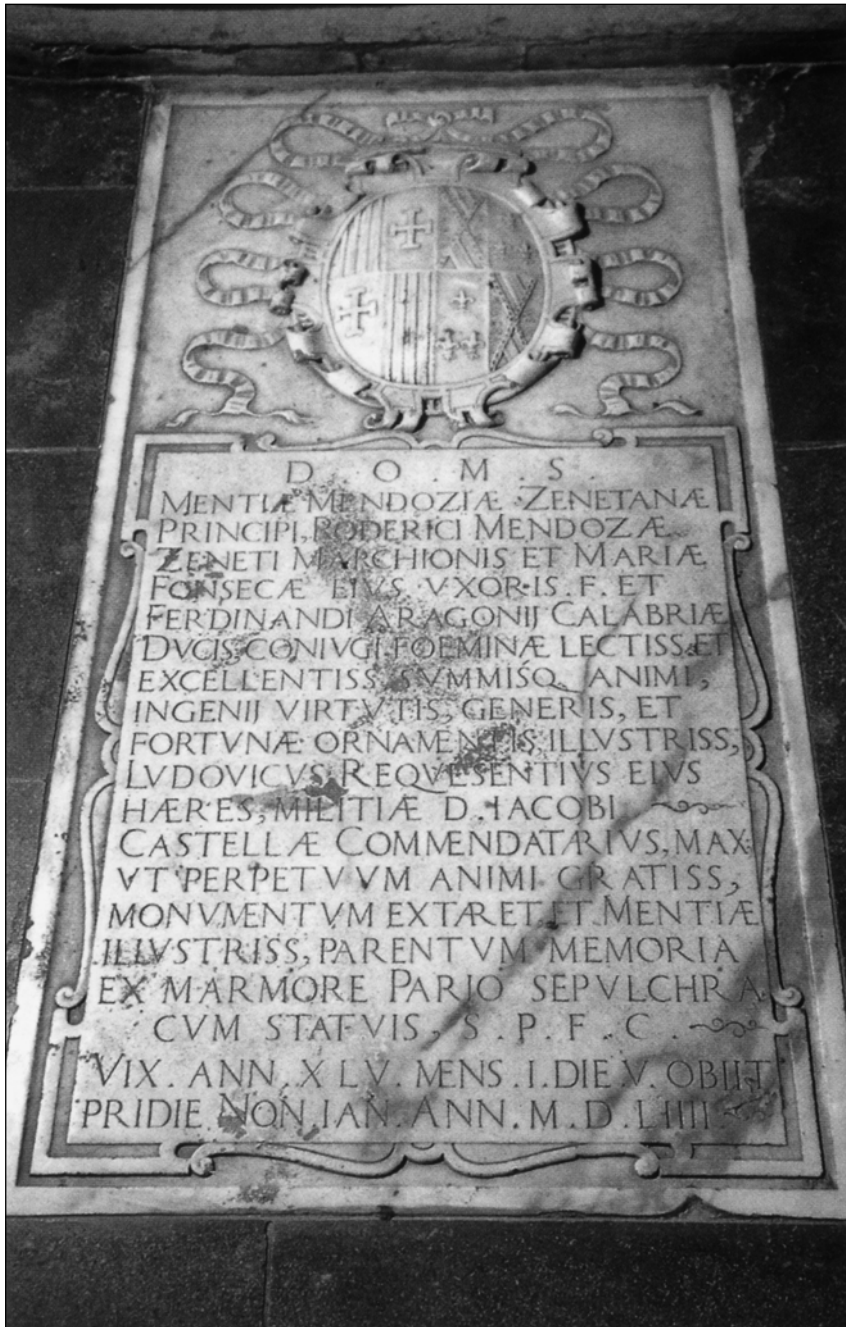 D . O . M . S .
MENTIÆ MENDOZIÆ ZENETANÆ
PRINCIPI, RODERICI MENDOZÆ
ZENETI MARCHIONIS ET MARIÆ
FONSECÆ EIVS VXORIS . F . ET
FERDINANDI ARAGONIJ CALABRIÆ
DVCIS CONIVGI FOEMINÆ LECTISS ET
EXCELLENTISS, SVMMISQ ANIMI,
INGENIJ VIRTVTIS, GENERIS, ET
FORTVNÆ ORNAMENTIS ILLVSTRISS,
LVDOVICVS REQVESENTIVS EIVS
HÆRES, MILITIÆ D. IACOBI
CASTELLÆ COMMENDATARIVS, MAX
VT PERPETVVM ANIMI GRATISS,
MONVMENTVM EXTARET, ET MENTIÆ
ILLVSTRISS, PARENTVM MEMORIA
EX MARMORE PARIO SEPVLCHRA
CVM STATVIS, S . P . F . C .
VIX . ANN . XLV . MENS . I . DIE . V . OBIIT
PRIDIE NON. IAN. ANN. M . D . LIIII